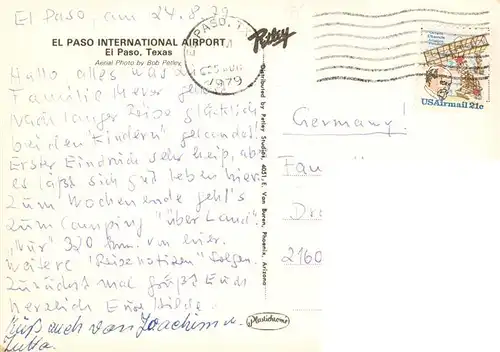 El Paso, am 24.8.79
EL PASO INTERNATIONAL AIRPORT
El Paso, Texas
Aerial Photo by Bob Petley
Petley
EL PASO, TX
1979
USAirmail 21c
Hallo alles was
Familie
Nach langer Reise glücklich
bei den "Kindern" gelandet.
Erster Eindruck sehr heiß, aber
es läßt sich gut leben hier.
Zum Wochenende geht's
zum Camping "über Land"
"Nur" 320 km. von hier.
Weitere "Reisenotizen" folgen.
Zunächst mal grüßt Euch
herzlich Eure Hilde.
Grüß auch von Joachim u.
Jutta.
Distributed by Petley Studios, 4051, E. Van Buren, Phoenix, Arizona
Plastichrome
Germany!
Fam
Dr
2160